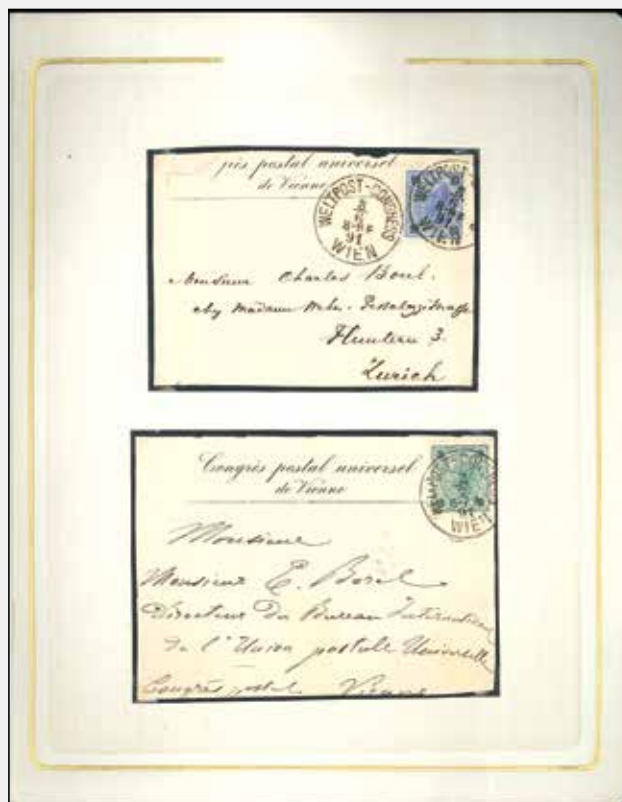 grès postal universel
de Vienne
WELTPOST-CONGRESS
5
6
91
WIEN
WELTPOST-
Monsieur Charles Borel.
chez Madame Weber. Pestalozzistrasse
Hunteren 3.
Zurich
Congrès postal universel
de Vienne
91
WIEN
Monsieur
Monsieur E. Borel
Directeur du Bureau International
de l'Union postale Universelle
Congrès postal Vienne